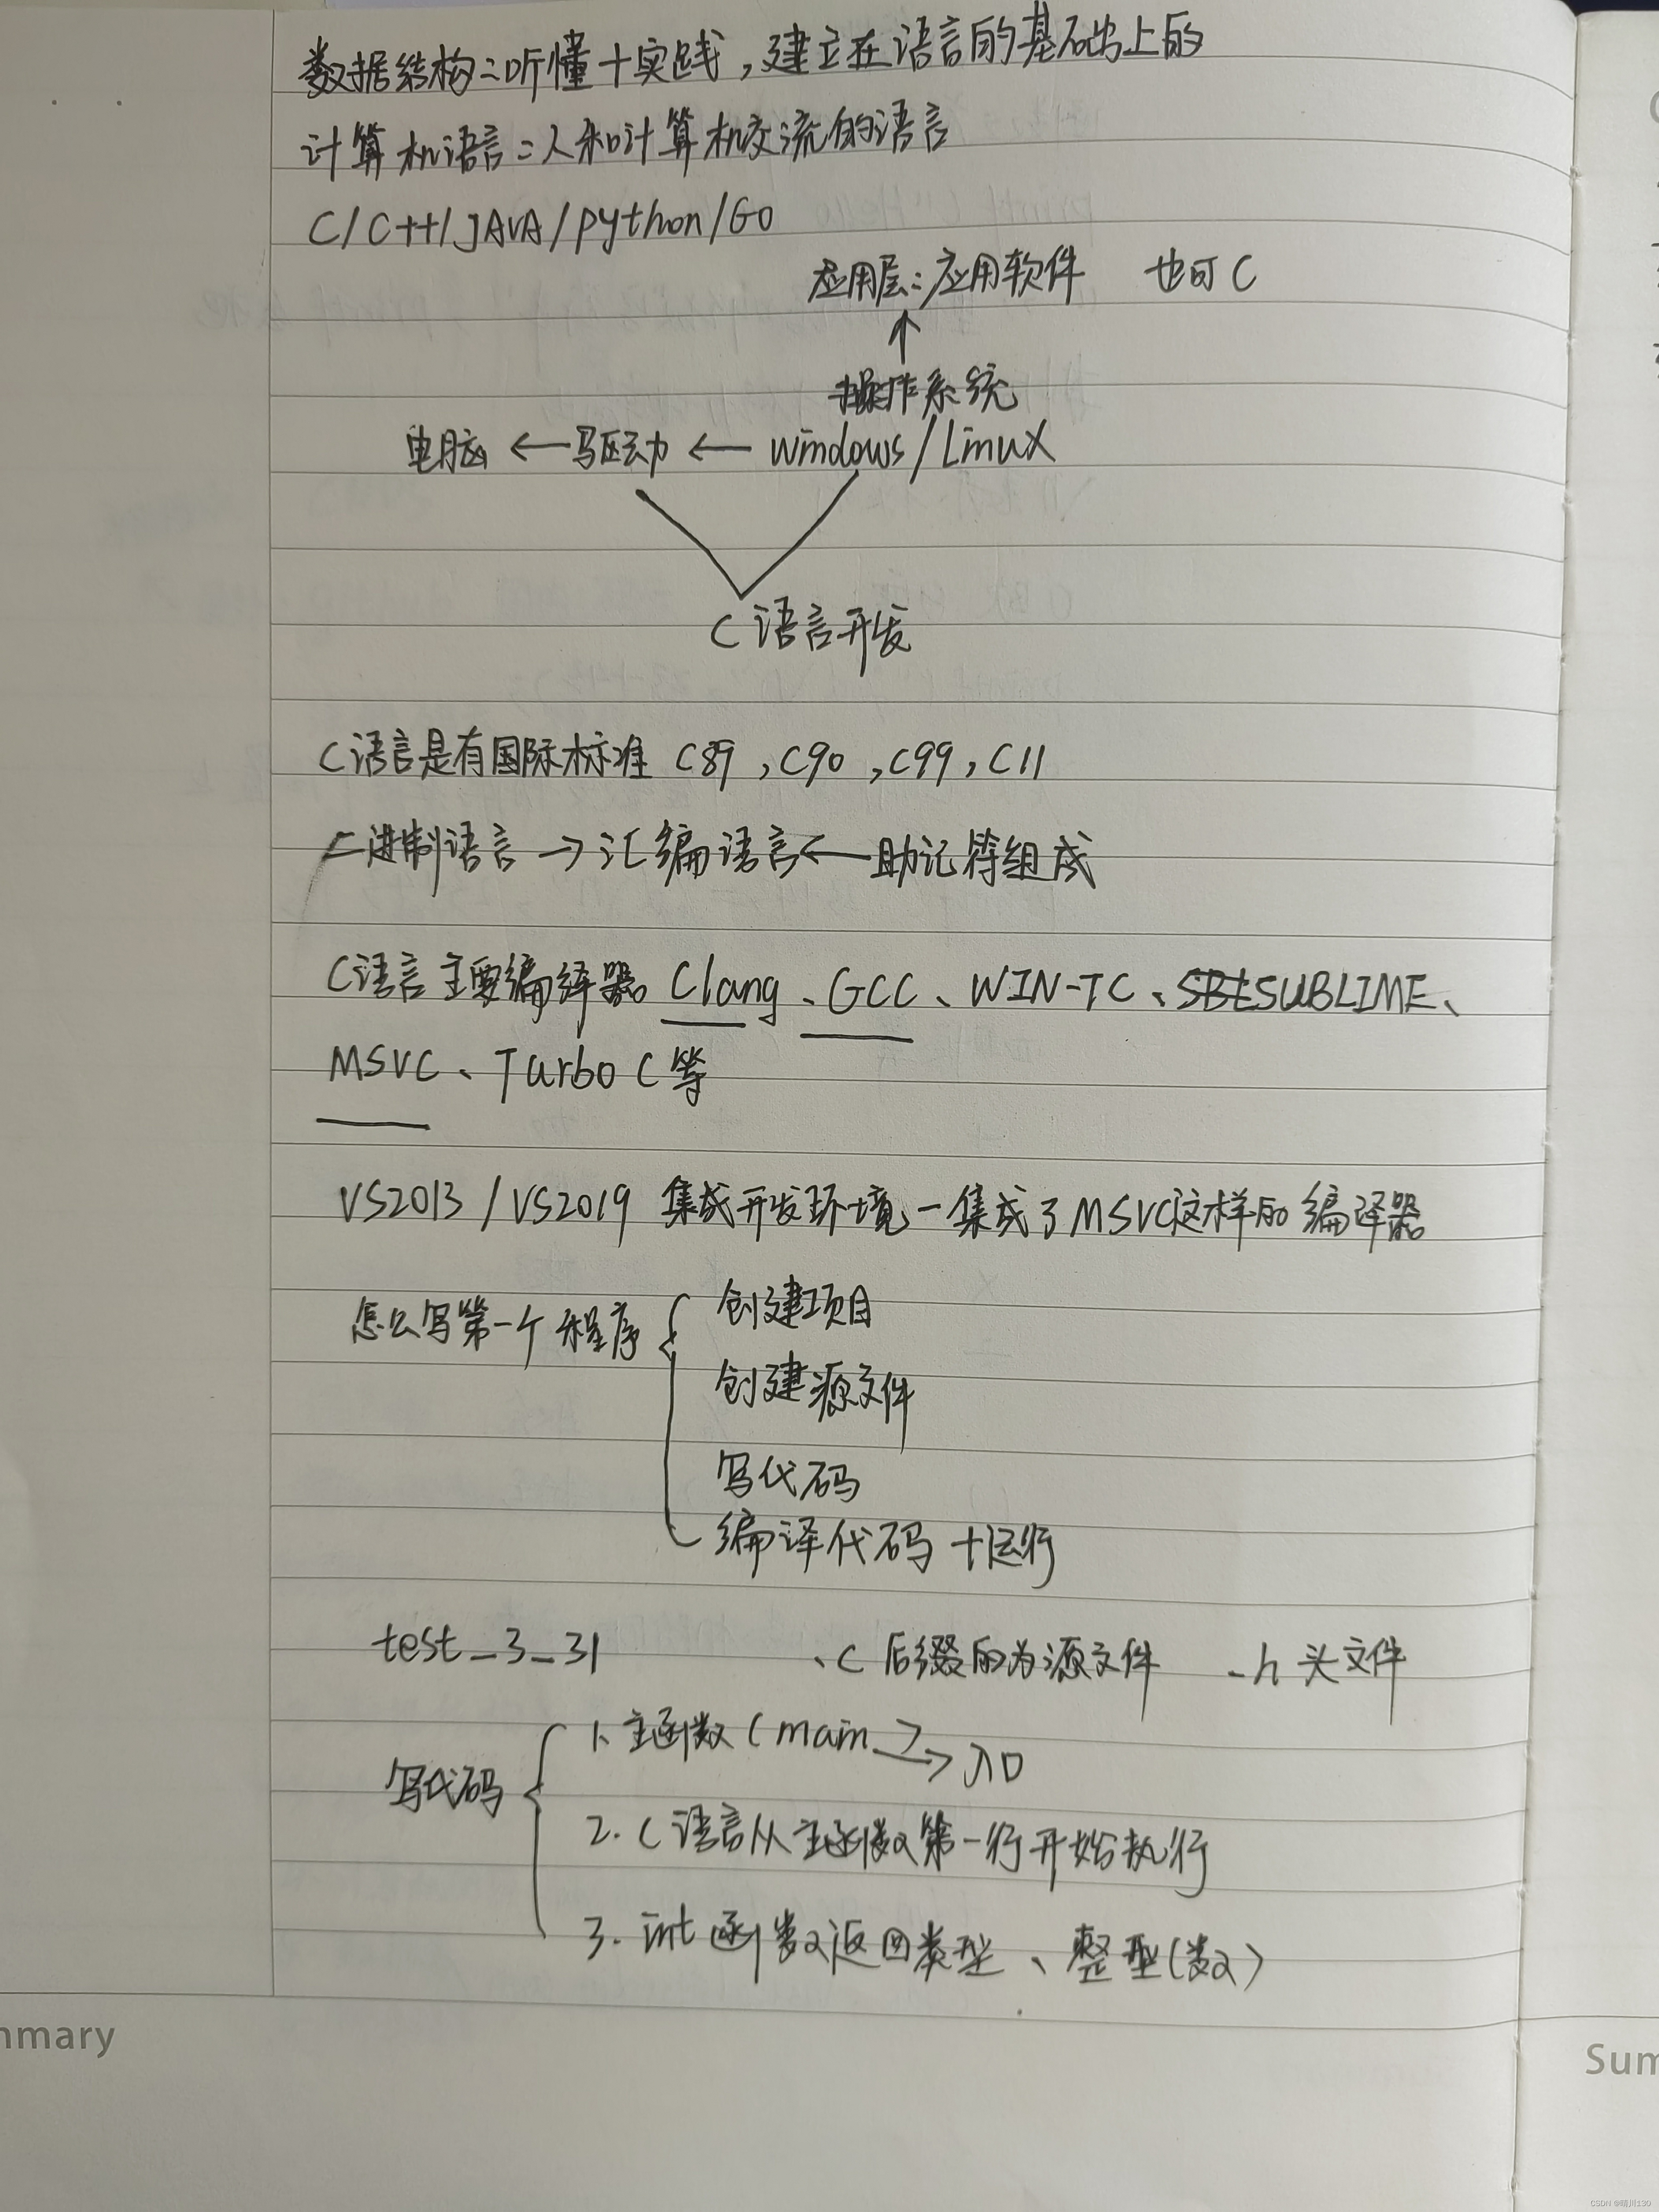 数据结构=听懂+实践,建立在语言的基础上的
计算机语言=人和计算机交流的语言
C/C++/JAVA/python/Go
应用层:应用软件 也可C
操作系统
电脑 ← 驱动 ← windows/Linux
C语言开发
C语言是有国际标准 C89,C90,C99,C11
二进制语言→汇编语言←助记符组成
C语言主要编译器。Clang、GCC、WIN-TC、SUBLIME、
MSVC、Turbo C等
VS2013/VS2019 集成开发环境-集成了MSVC这样的编译器
怎么写第一个程序
创建项目
创建源文件
写代码
编译代码+运行
test_3_31 .c后缀的为源文件 .h头文件
写代码
1、主函数(main)→入口
2.C语言从主函数第一行开始执行
3.int函数返回类型、整型(数)
mmary
Sum
CSDN @晴川130